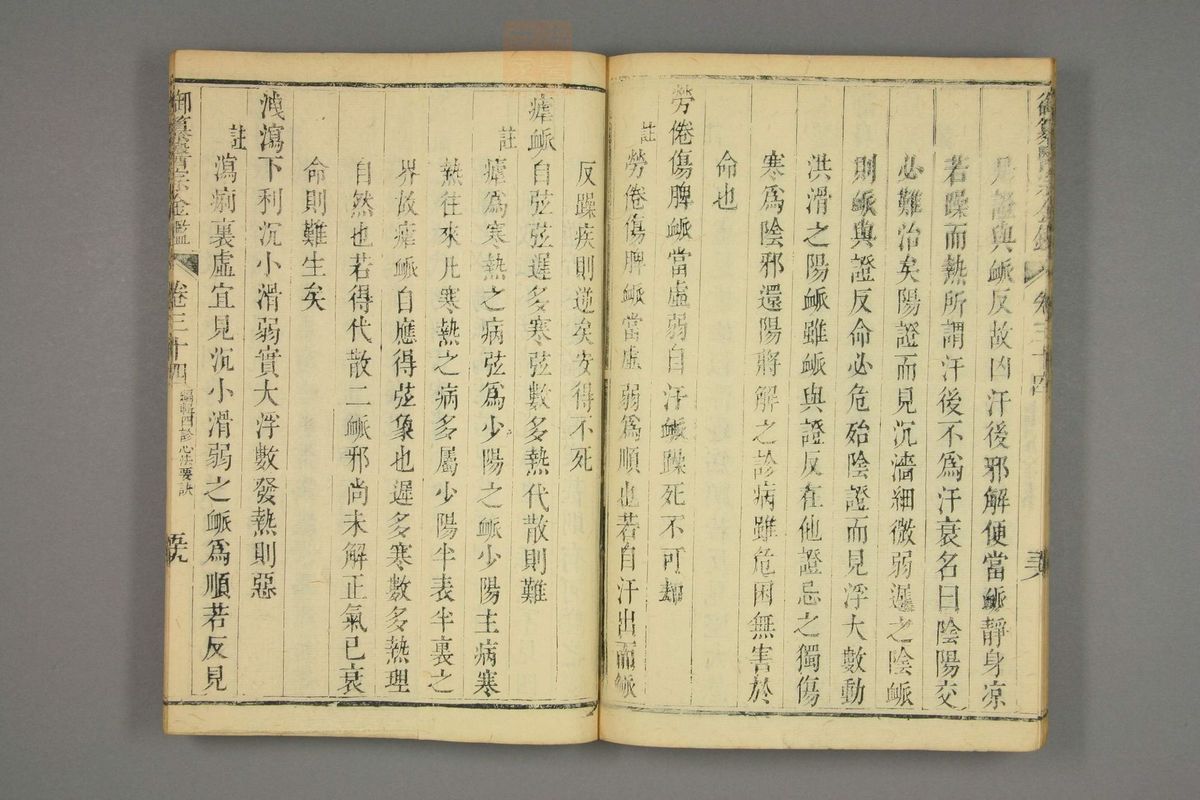 御纂醫宗金鑑 卷三十四
為證與䘑反故凶汗後邪解便當䘑靜身凉
若躁而熱所謂汗後不為汗衰名曰陰陽交
必難治矣陽證而見沉濇細微弱遲之陰䘑
則䘑與證反命必危殆陰證而見浮大數動
洪滑之陽䘑雖䘑與證反在他證忌之獨傷
寒爲陰邪還陽將解之診病雖危困無害於
命也
勞倦傷脾䘑當虛弱自汗䘑躁死不可却
註勞倦傷脾䘑當虛弱爲順也若自汗出而䘑
反躁疾則逆矣安得不死
瘧䘑自弦弦遲多寒弦數多熱代散則難
註瘧爲寒熱之病弦爲少陽之䘑少陽主病寒
熱往來凡寒熱之病多屬少陽半表半裏之
界故瘧䘑自應得弦象也遲多寒數多熱理
自然也若得代散二䘑邪尚未解正氣已衰
命則難生矣
洩瀉下利沉小滑弱實大浮數發熱則惡
註瀉痢裏虛宜見沉小滑弱之䘑爲順若反見
御纂醫宗金鑑 卷三十四 編輯四診心法要訣 五九